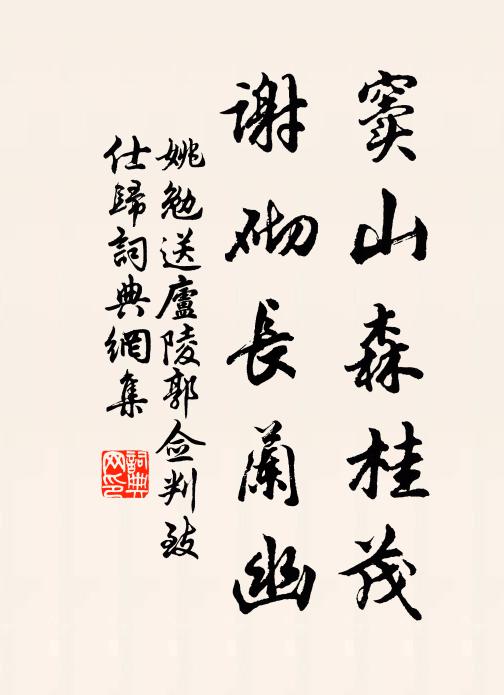 窦山森桂茂
谢砌长蘭幽
姚勉送廬陵郭佥判致
仕歸詞典網集
詞典
网印